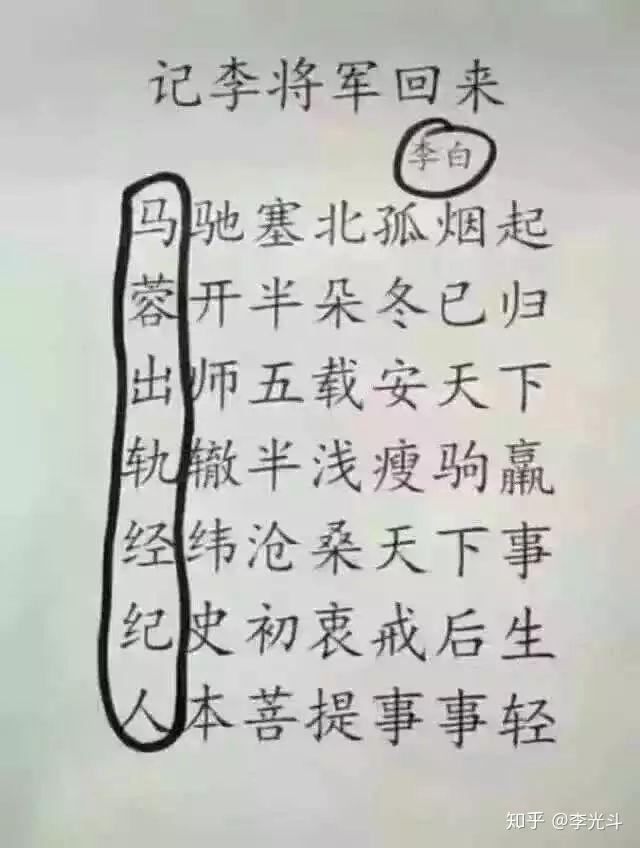 记李将军回来
李白
马驰塞北孤烟起
蓉开半朵冬已归
出师五载安天下
轨辙半浅瘦驹羸
经纬沧桑天下事
纪史初衷戒后生
人本菩提事事轻
知乎 @李光斗